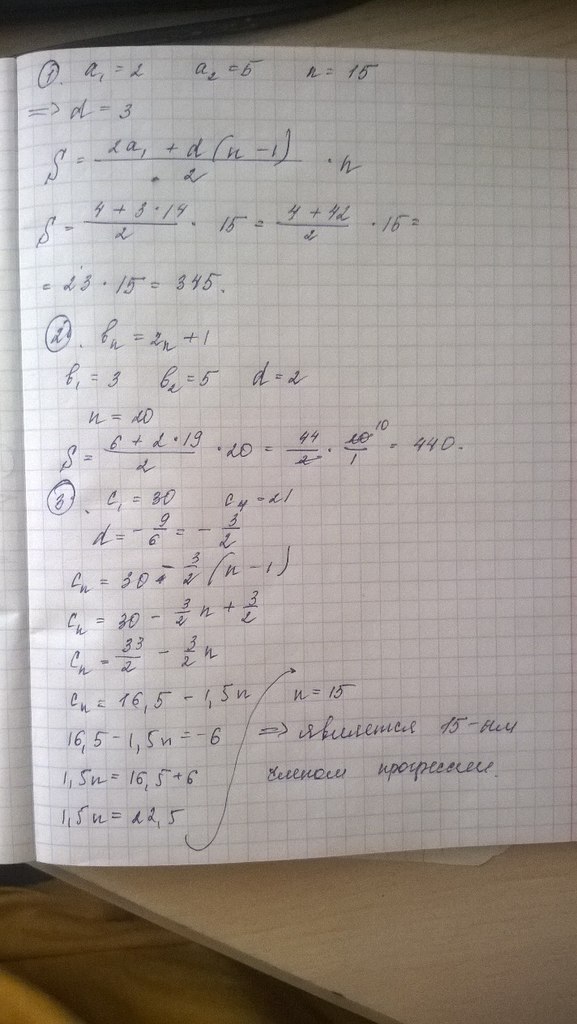 1. a₁ = 2 a₂ = 5 n = 15
=> d = 3
S = (2a₁ + d(n - 1))/2 · n
S = (4 + 3 · 14)/2 · 15 = (4 + 42)/2 · 15 =
= 23 · 15 = 345.
2. bₙ = 2ₙ + 1
b₁ = 3 b₂ = 5 d = 2
n = 20
S = (6 + 2 · 19)/2 · 20 = 44/2 · 20/1 10 = 440.
3. c₁ = 30 c₄ = 21
d = -9/6 = -3/2
cₙ = 30 - 3/2 (n - 1)
cₙ = 30 - 3/2 n + 3/2
cₙ = 33/2 - 3/2 n
cₙ = 16,5 - 1,5n
16,5 - 1,5n = -6
1,5n = 16,5 + 6
1,5n = 22,5
n = 15
=> является 15-ым
членом прогрессии.